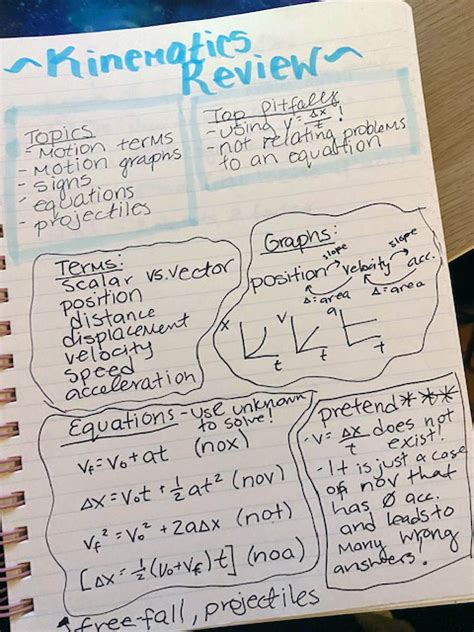 ~Kinematics
Review~
Topics
- Motion terms
- Motion graphs
- signs
- equations
- projectiles
Top Pitfalls
- using v = Δx/t !
- not relating problems
to an equation
Terms:
scalar vs. vector
position
distance
displacement
velocity
speed
acceleration
Graphs:
slope slope
position velocity acc.
Δ=area Δ=area
x v a
t t t
Equations - use unknown
to solve!
vf = v0 + at (nox)
Δx = v0t + 1/2 at² (nov)
vf² = v0² + 2aΔx (not)
[Δx = 1/2 (v0+vf) t] (noa)
pretend***
- v = Δx/t does not
exist!
- It is just a case
of nov that
has Ø acc.
and leads to
many wrong
answers.
free-fall, projectiles